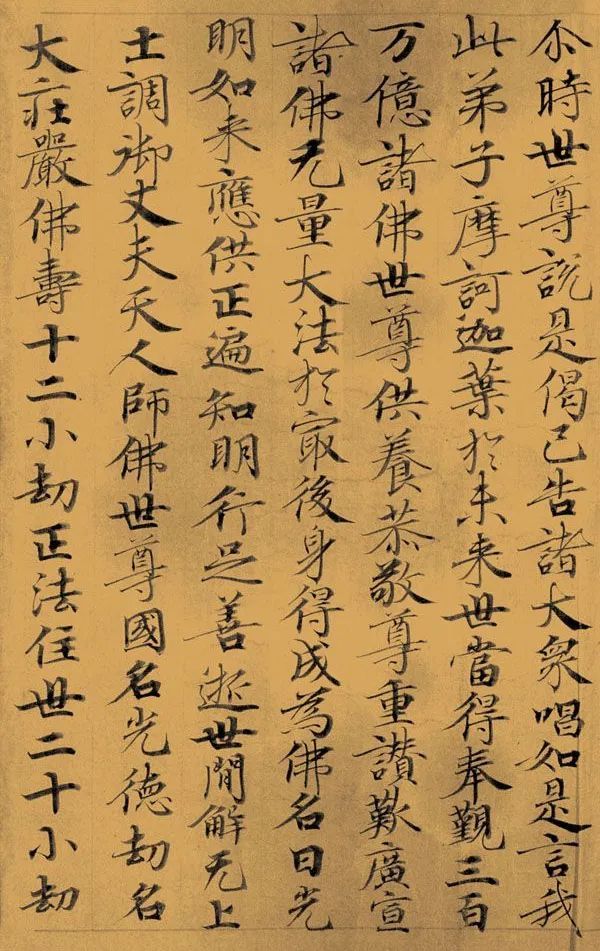 尒時世尊説是偈已告諸大衆唱如是言我
此弟子摩訶迦葉扵未来世當得奉覲三百
万億諸佛世尊供養恭敬尊重讃歎廣宣
諸佛无量大法扵冣後身得成為佛名曰光
明如来應供正遍知明行足善逝世間解无上
士調御丈夫天人師佛世尊國名光徳劫名
大莊嚴佛壽十二小劫正法住世二十小劫